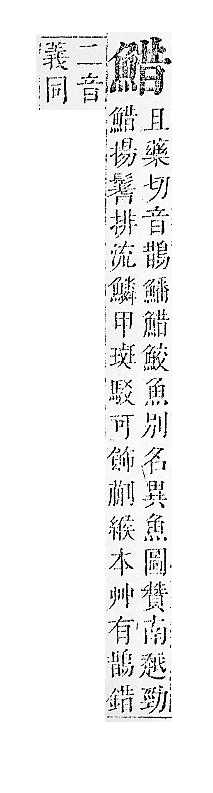 䱜
且藥切音鵲鱕䱜鮫魚別名異魚圖贊南越勁
䱜揚鬐排流鱗甲斑駁可飾蒯緱本艸有鵲錯
二音
義同